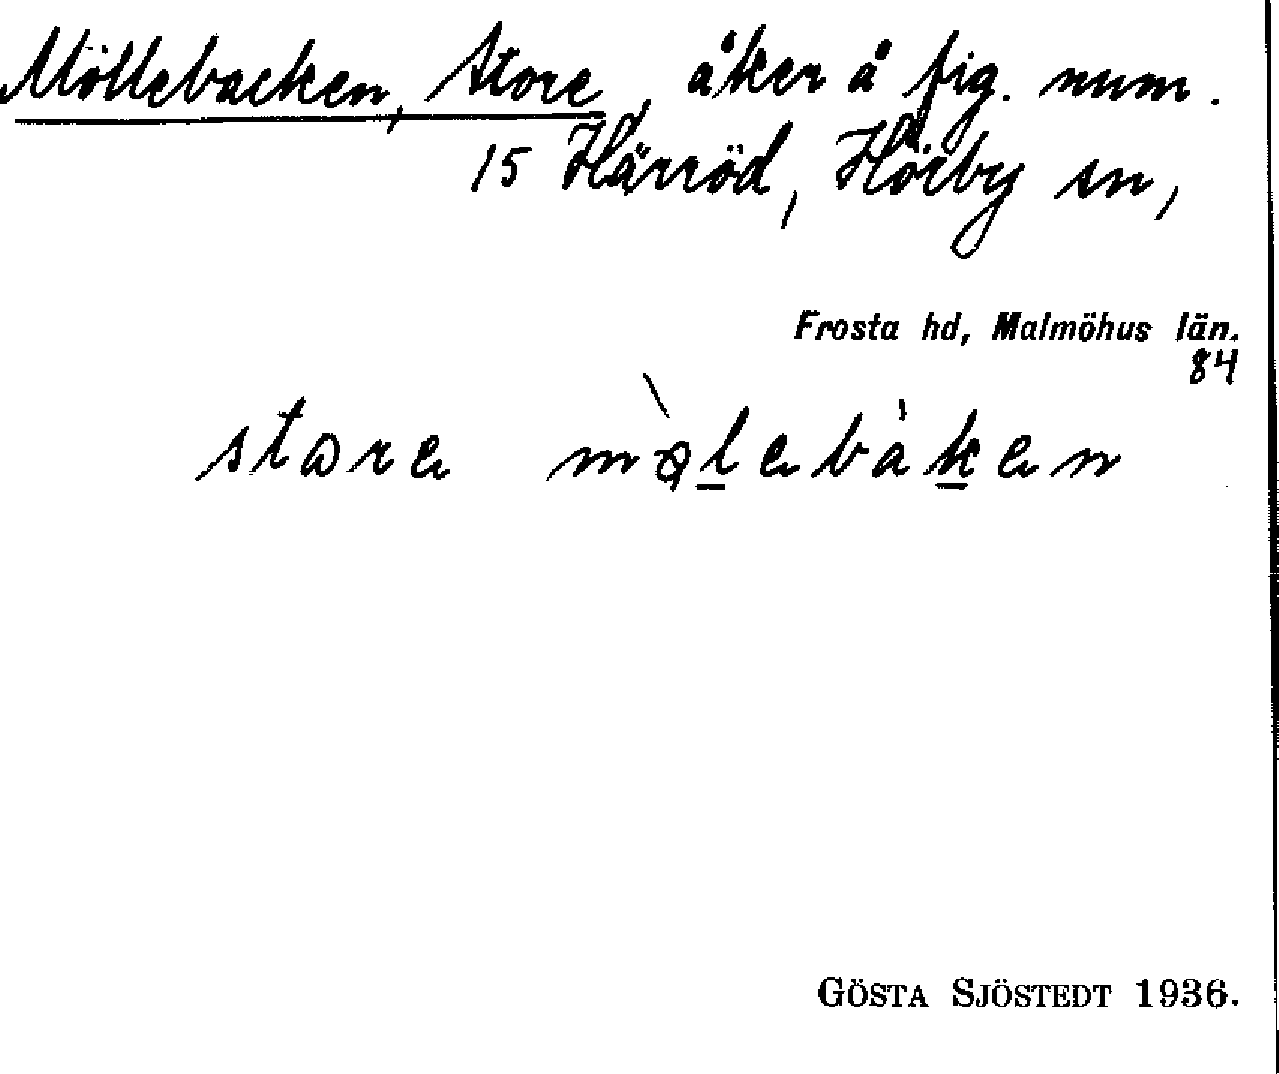 Möllebacken, Store, åker å fig. num.
15 Härröd, Hörby sn,
Frosta hd, Malmöhus län.
84
store mø̀lebàken
GÖSTA SJÖSTEDT 1936.